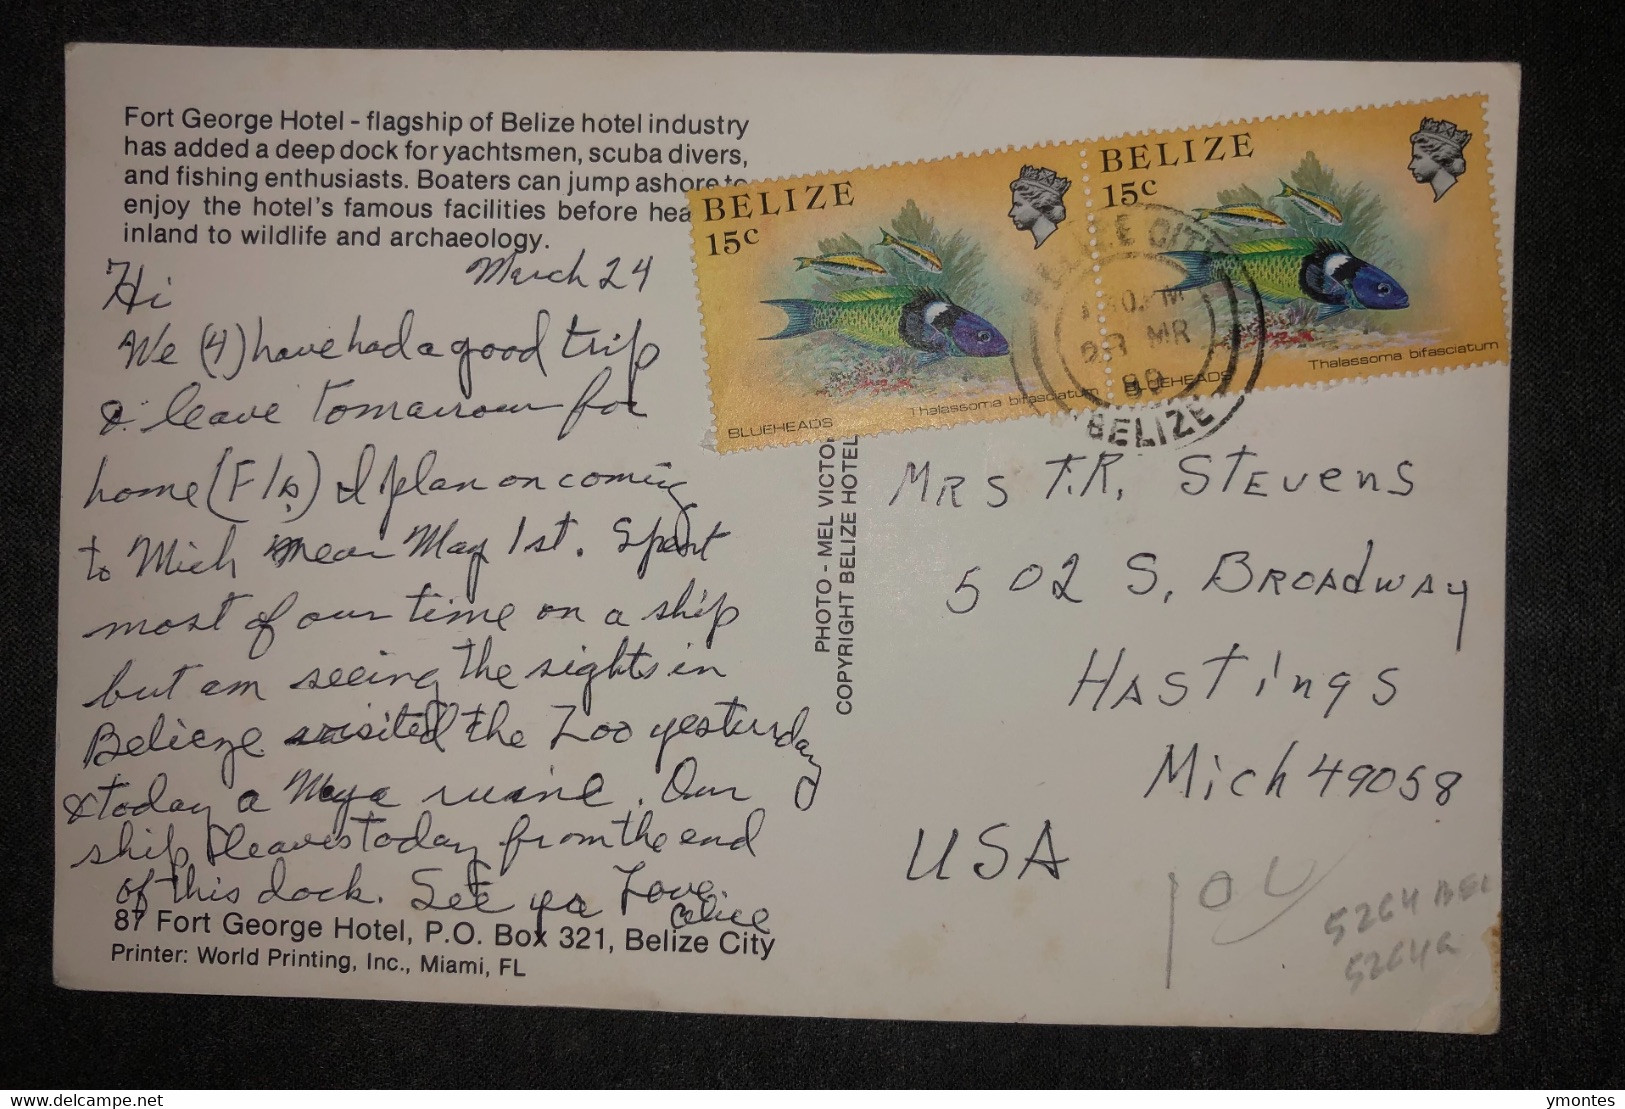 Fort George Hotel - flagship of Belize hotel industry
has added a deep dock for yachtsmen, scuba divers,
and fishing enthusiasts. Boaters can jump ashore to
enjoy the hotel's famous facilities before hea
inland to wildlife and archaeology.
March 24
Hi
We (4) have had a good trip
& leave tomarrow for
home (Fla.) I plan on coming
to Mich near May 1st. Spent
most of our time on a ship
but am seeing the sights in
Belieze visited the Zoo yesturday
& today a Maya ruine. Our
ship leaves today from the end
of this dock. See ya Love
87 Fort George Hotel, P.O. Box 321, Belize City
Printer: World Printing, Inc., Miami, FL
PHOTO - MEL VICTO
COPYRIGHT BELIZE HOTEL
BELIZE
15c
BLUEHEADS
Thalassoma bifasciatum
BELIZE
15c
BLUEHEADS
Thalassoma bifasciatum
BELIZE CITY
MR
BELIZE
MRS T.R. STEVENS
502 S. BROADWAY
HASTINGS
Mich 49058
USA
5264 BEL
5264a
delcampe.net
ymontes